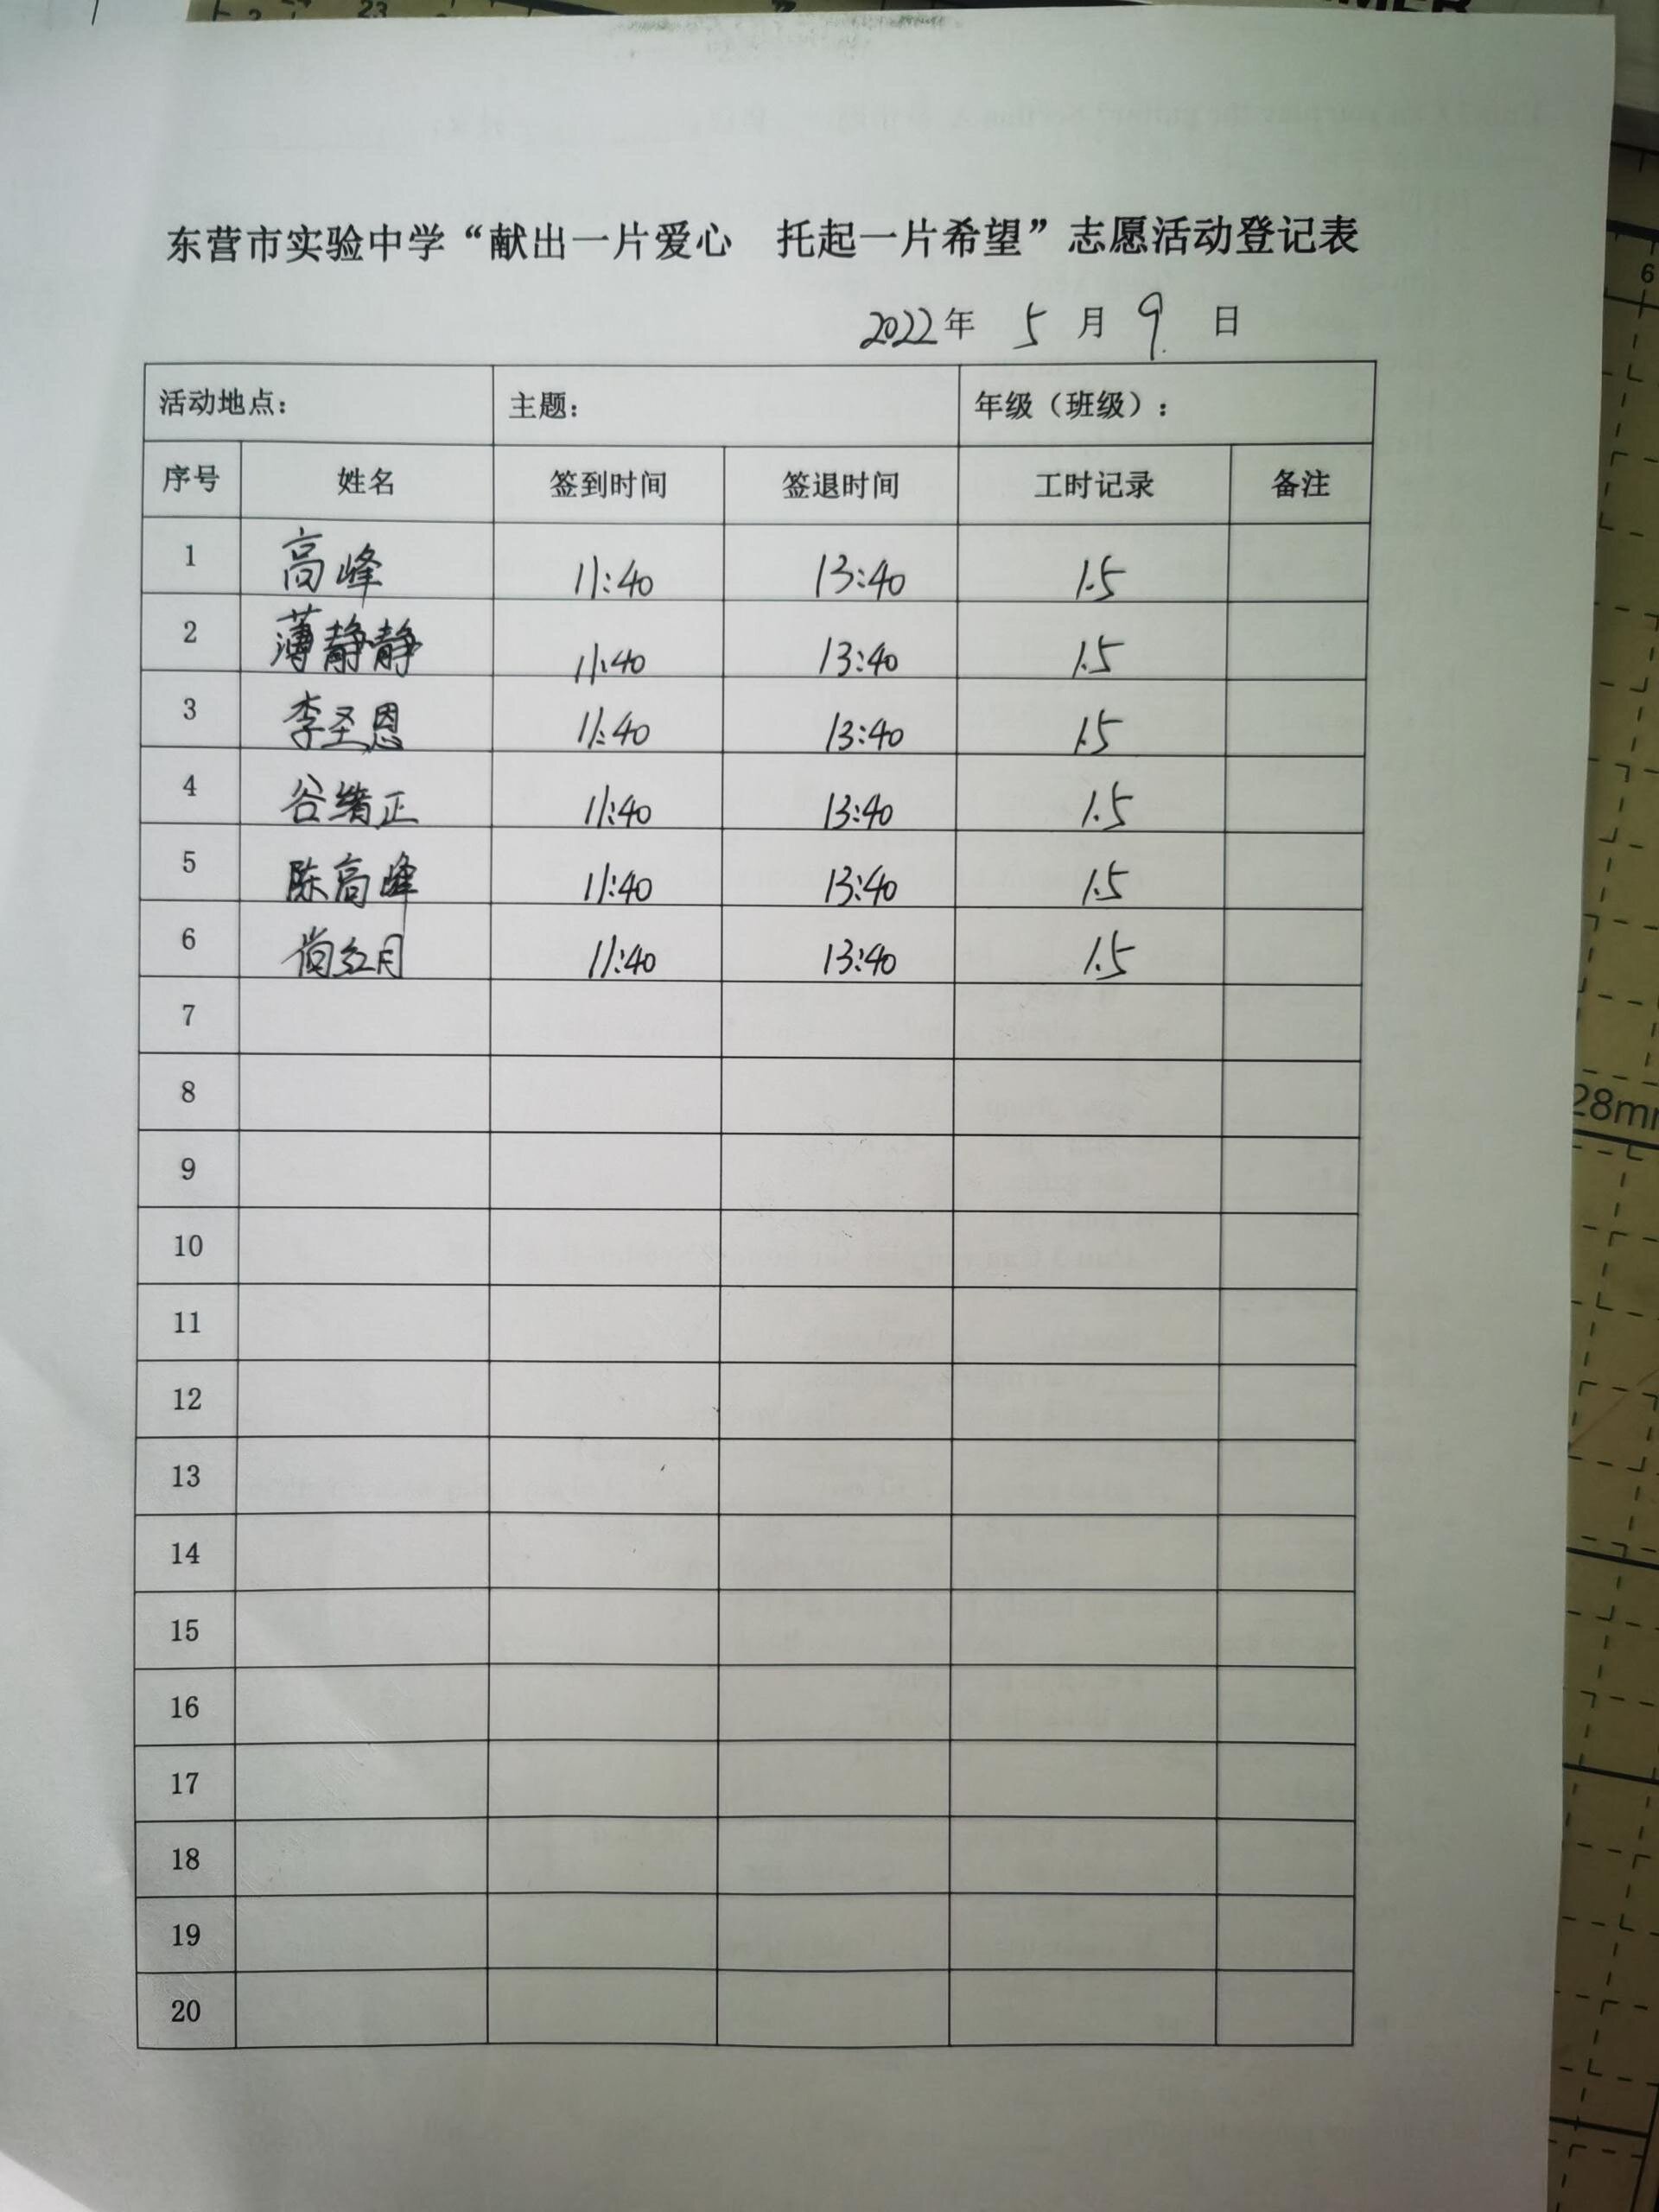 东营市实验中学“献出一片爱心 托起一片希望”志愿活动登记表
2022年 5 月 9 日
活动地点: 主题: 年级（班级）:
序号 姓名 签到时间 签退时间 工时记录 备注
1 高峰 11:40 13:40 1.5
2 薄静静 11:40 13:40 1.5
3 李圣恩 11:40 13:40 1.5
4 谷绪正 11:40 13:40 1.5
5 陈高峰 11:40 13:40 1.5
6 尚红月 11:40 13:40 1.5
7
8
9
10
11
12
13
14
15
16
17
18
19
20
23
6
28mm